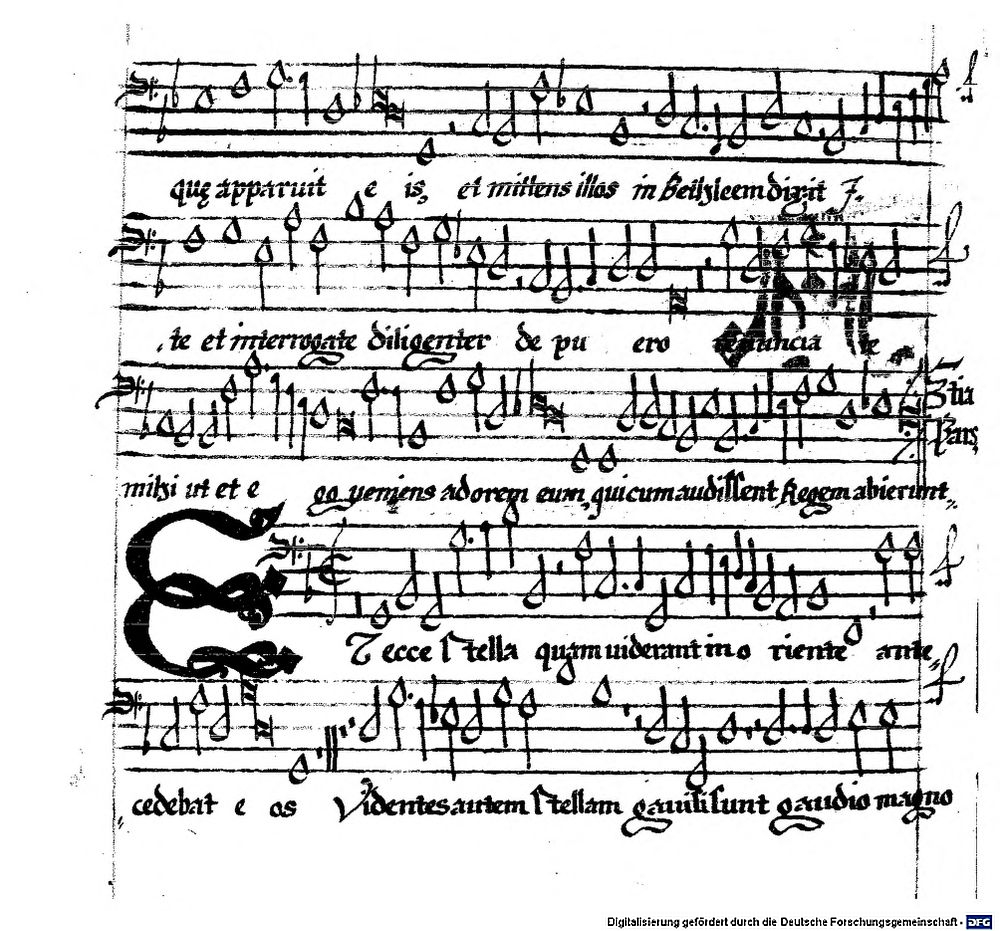 quę apparuit e is, et mittens illos in Bethleem dixit J.
te et interrogate diligenter de pu ero renuncia te
mihi ut et e go veniens adorem eum, qui cum audissent Regem abierunt,
3tia
Pars
Et ecce stella quam viderant in o riente ante,
cedebat e os Videntes autem stellam gavisi sunt gaudio magno
Digitalisierung gefördert durch die Deutsche Forschungsgemeinschaft - DFG